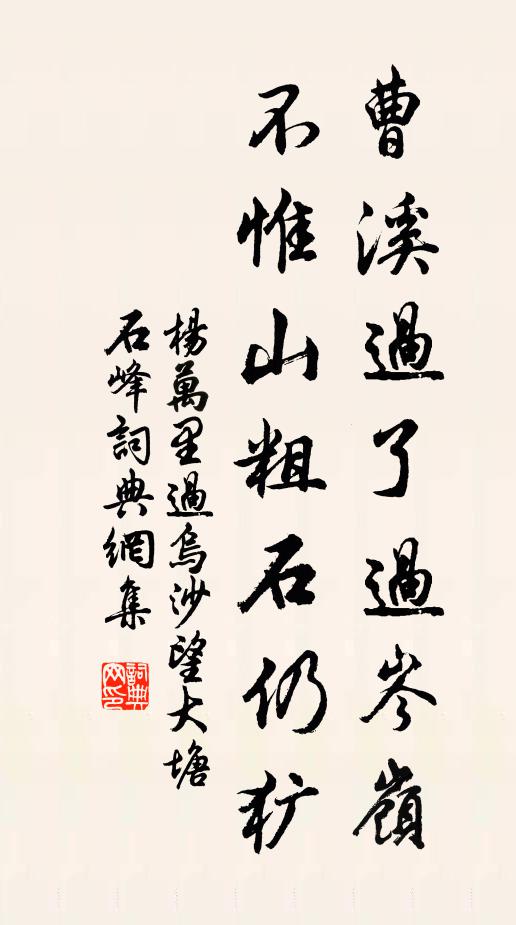 曹溪過了過岑嶺
不惟山粗石仍犷
楊萬里過烏沙望大塘
石峰詞典網集
詞典网印